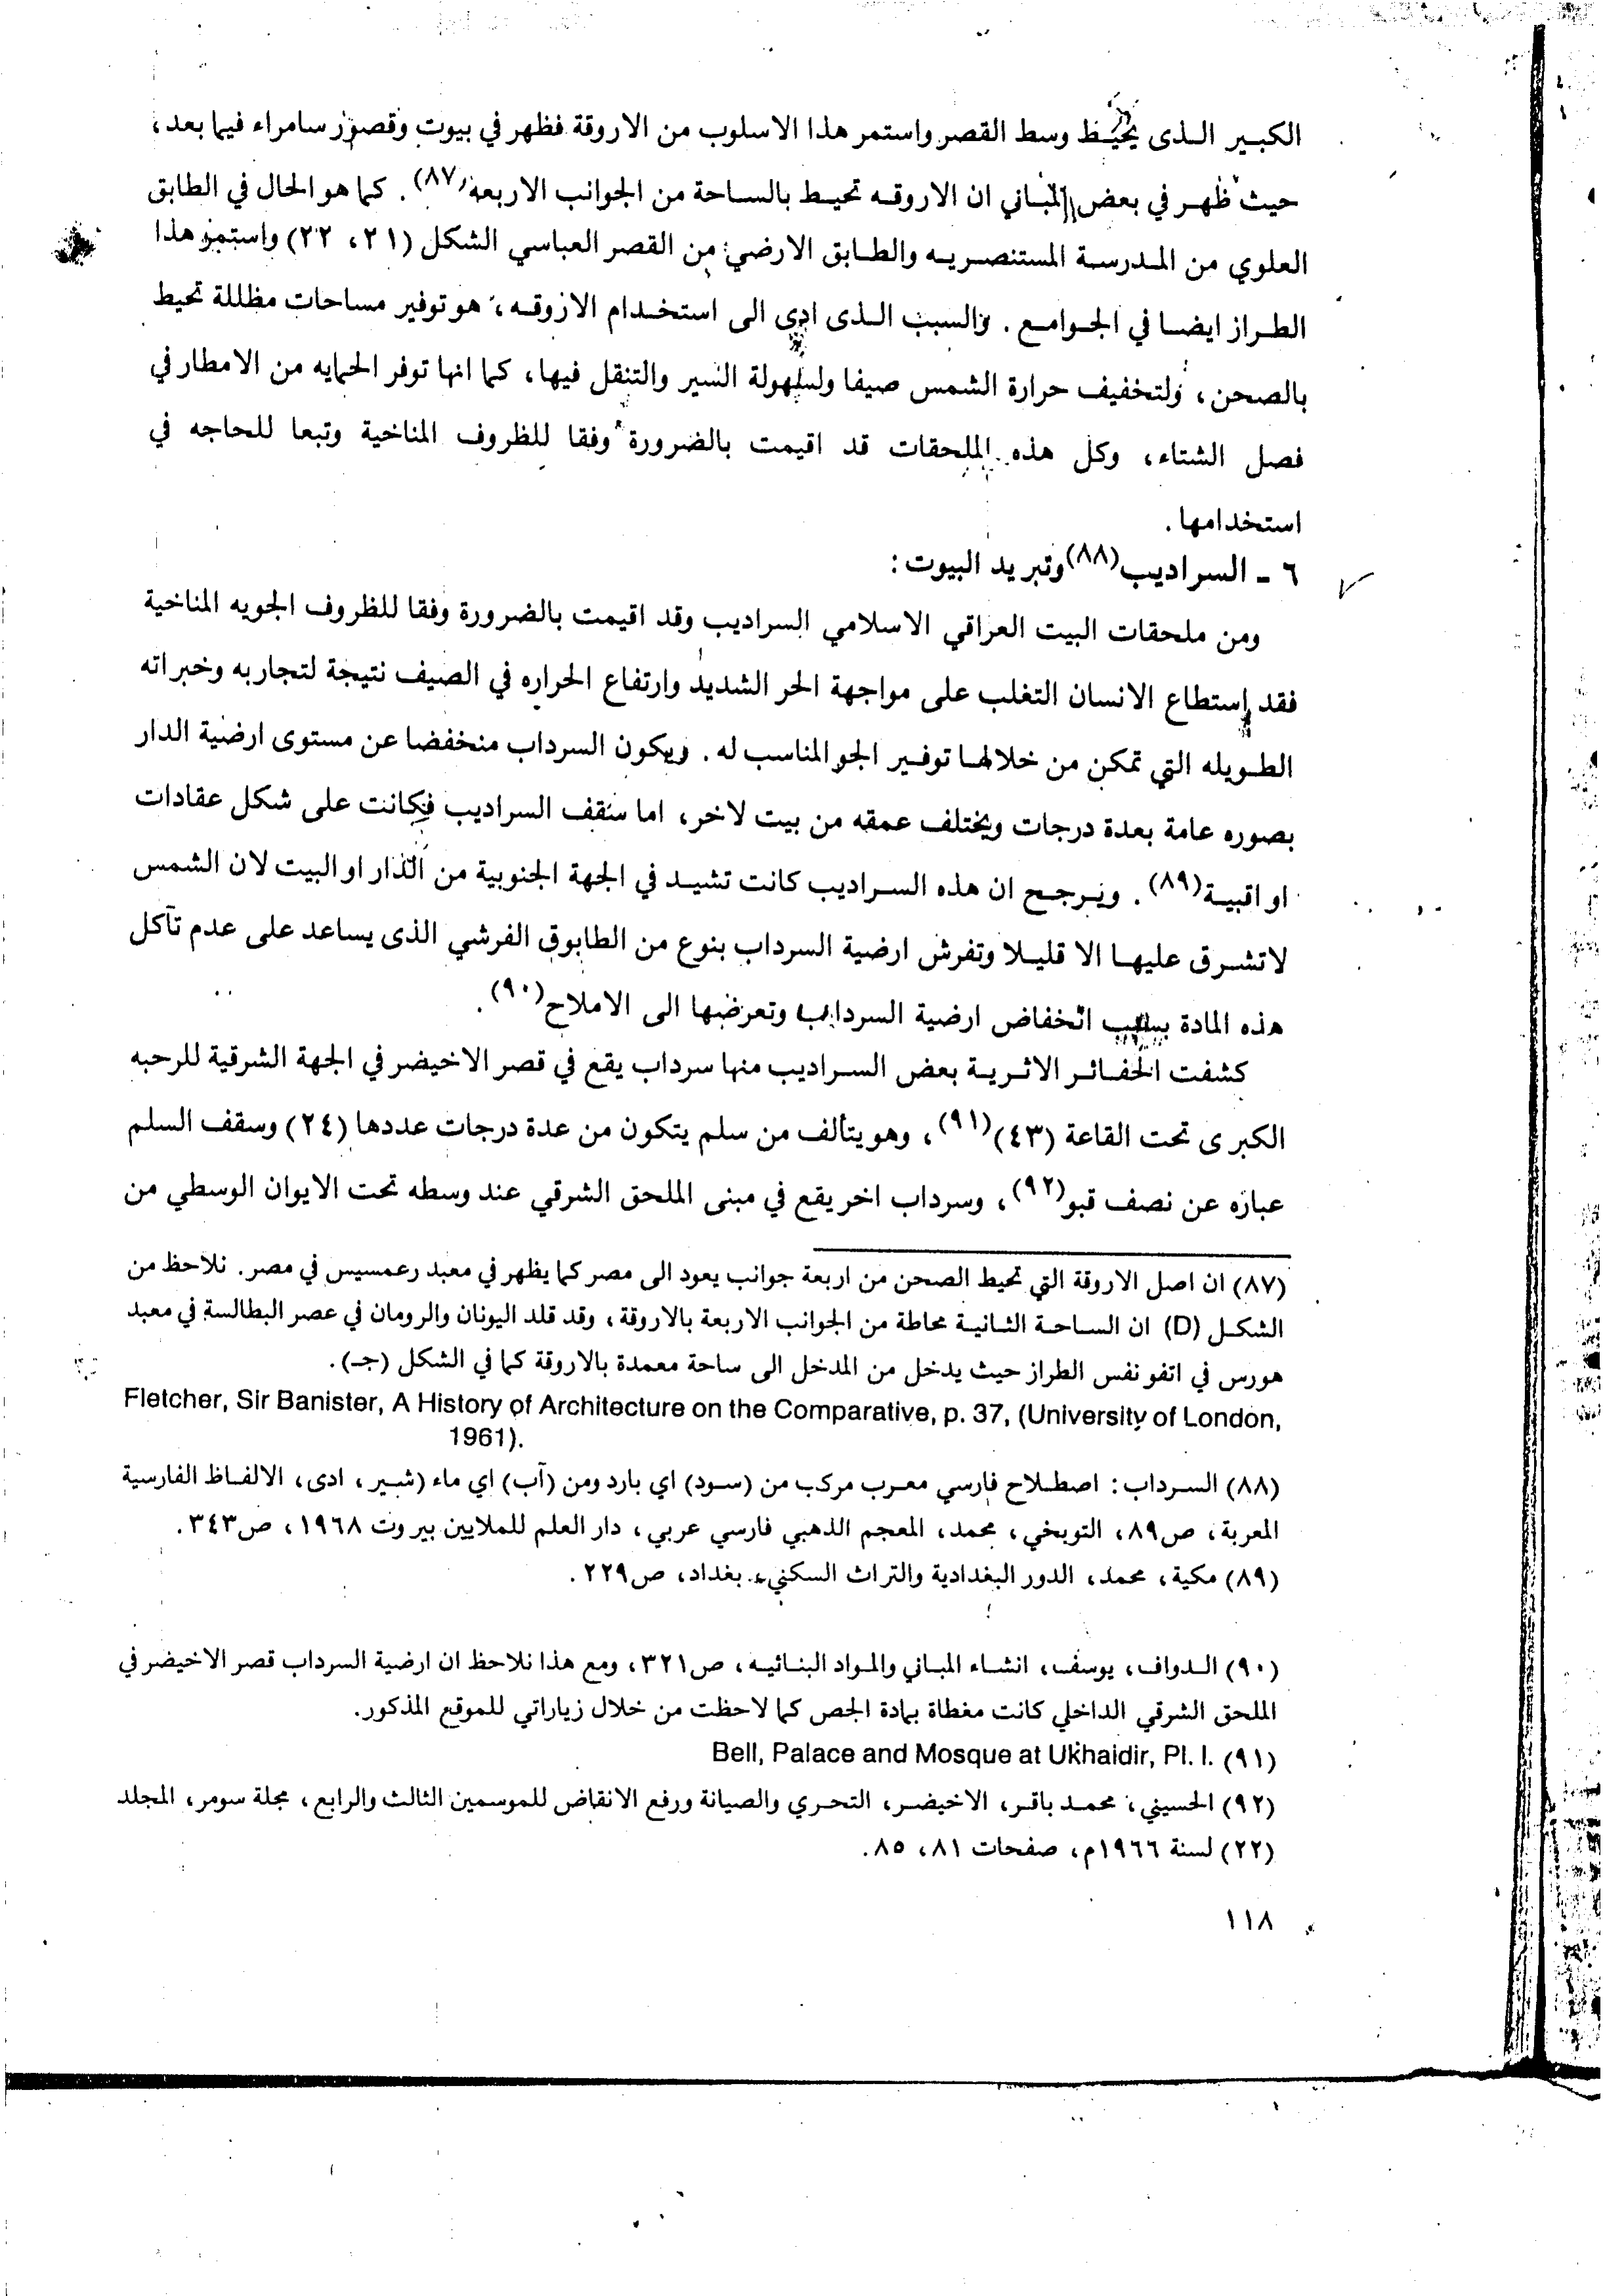 الكبير الذى يحيط وسط القصر واستمر هذا الاسلوب من الاروقة فظهر في بيوت وقصور سامراء فيما بعد،
حيث ظهر في بعض المباني ان الاروقه تحيط بالساحة من الجوانب الاربعة(٨٧). كما هو الحال في الطابق
العلوي من المدرسة المستنصريه والطابق الارضي من القصر العباسي الشكل (٢١، ٢٢) واستمر هذا
الطراز ايضا في الجوامع. والسبب الذى ادى الى استخدام الاروقه، هو توفير مساحات مظللة تحيط
بالصحن، ولتخفيف حرارة الشمس صيفا ولسهولة السير والتنقل فيها، كما انها توفر الحمايه من الامطار في
فصل الشتاء، وكل هذه الملحقات قد اقيمت بالضرورة وفقا للظروف المناخية وتبعا للحاجه في
استخدامها.
٦ - السراديب(٨٨) وتبريد البيوت:
ومن ملحقات البيت العراقي الاسلامي السراديب وقد اقيمت بالضرورة وفقا للظروف الجويه المناخية
فقد إستطاع الانسان التغلب على مواجهة الحر الشديد وارتفاع الحراره في الصيف نتيجة لتجاربه وخبراته
الطويله التي تمكن من خلالها توفير الجو المناسب له. ويكون السرداب منخفضا عن مستوى ارضية الدار
بصوره عامة بعدة درجات ويختلف عمقه من بيت لاخر، اما سقف السراديب فكانت على شكل عقادات
او اقبية(٨٩). ويرجح ان هذه السراديب كانت تشيد في الجهة الجنوبية من الدار او البيت لان الشمس
لاتشرق عليها الا قليلا وتفرش ارضية السرداب بنوع من الطابوق الفرشي الذى يساعد على عدم تآكل
هذه المادة بسبب انخفاض ارضية السرداب وتعرضها الى الاملاح(٩٠).
كشفت الحفائر الاثرية بعض السراديب منها سرداب يقع في قصر الاخيضر في الجهة الشرقية للرحبه
الكبرى تحت القاعة (٤٣)(٩١)، وهو يتألف من سلم يتكون من عدة درجات عددها (٢٤) وسقف السلم
عباره عن نصف قبو(٩٢)، وسرداب اخر يقع في مبنى الملحق الشرقي عند وسطه تحت الايوان الوسطي من
(٨٧) ان اصل الاروقة التي تحيط الصحن من اربعة جوانب يعود الى مصر كما يظهر في معبد رعمسيس في مصر. نلاحظ من
الشكل (D) ان الساحة الثانية محاطة من الجوانب الاربعة بالاروقة، وقد قلد اليونان والرومان في عصر البطالسة في معبد
هورس في اتفو نفس الطراز حيث يدخل من المدخل الى ساحة معمدة بالاروقة كما في الشكل (جـ).
Fletcher, Sir Banister, A History of Architecture on the Comparative, p. 37, (University of London,
1961).
(٨٨) السرداب: اصطلاح فارسي معرب مركب من (سود) اي بارد ومن (آب) اي ماء (شير، ادى، الالفاظ الفارسية
المعربة، ص٨٩، التوبخي، محمد، المعجم الذهبي فارسي عربي، دار العلم للملايين بيروت ١٩٦٨، ص٣٤٣.
(٨٩) مكية، محمد، الدور البغدادية والتراث السكني، بغداد، ص٢٢٩.
(٩٠) الدواف، يوسف، انشاء المباني والمواد البنائيه، ص٣٢١، ومع هذا نلاحظ ان ارضية السرداب قصر الاخيضر في
الملحق الشرقي الداخلي كانت مغطاة بمادة الجص كما لاحظت من خلال زياراتي للموقع المذكور.
(٩١) Bell, Palace and Mosque at Ukhaidir, Pl. I.
(٩٢) الحسيني، محمد باقر، الاخيضر، التحري والصيانة ورفع الانقاض للموسمين الثالث والرابع، مجلة سومر، المجلد
(٢٢) لسنة ١٩٦٦م، صفحات ٨١، ٨٥.
١١٨